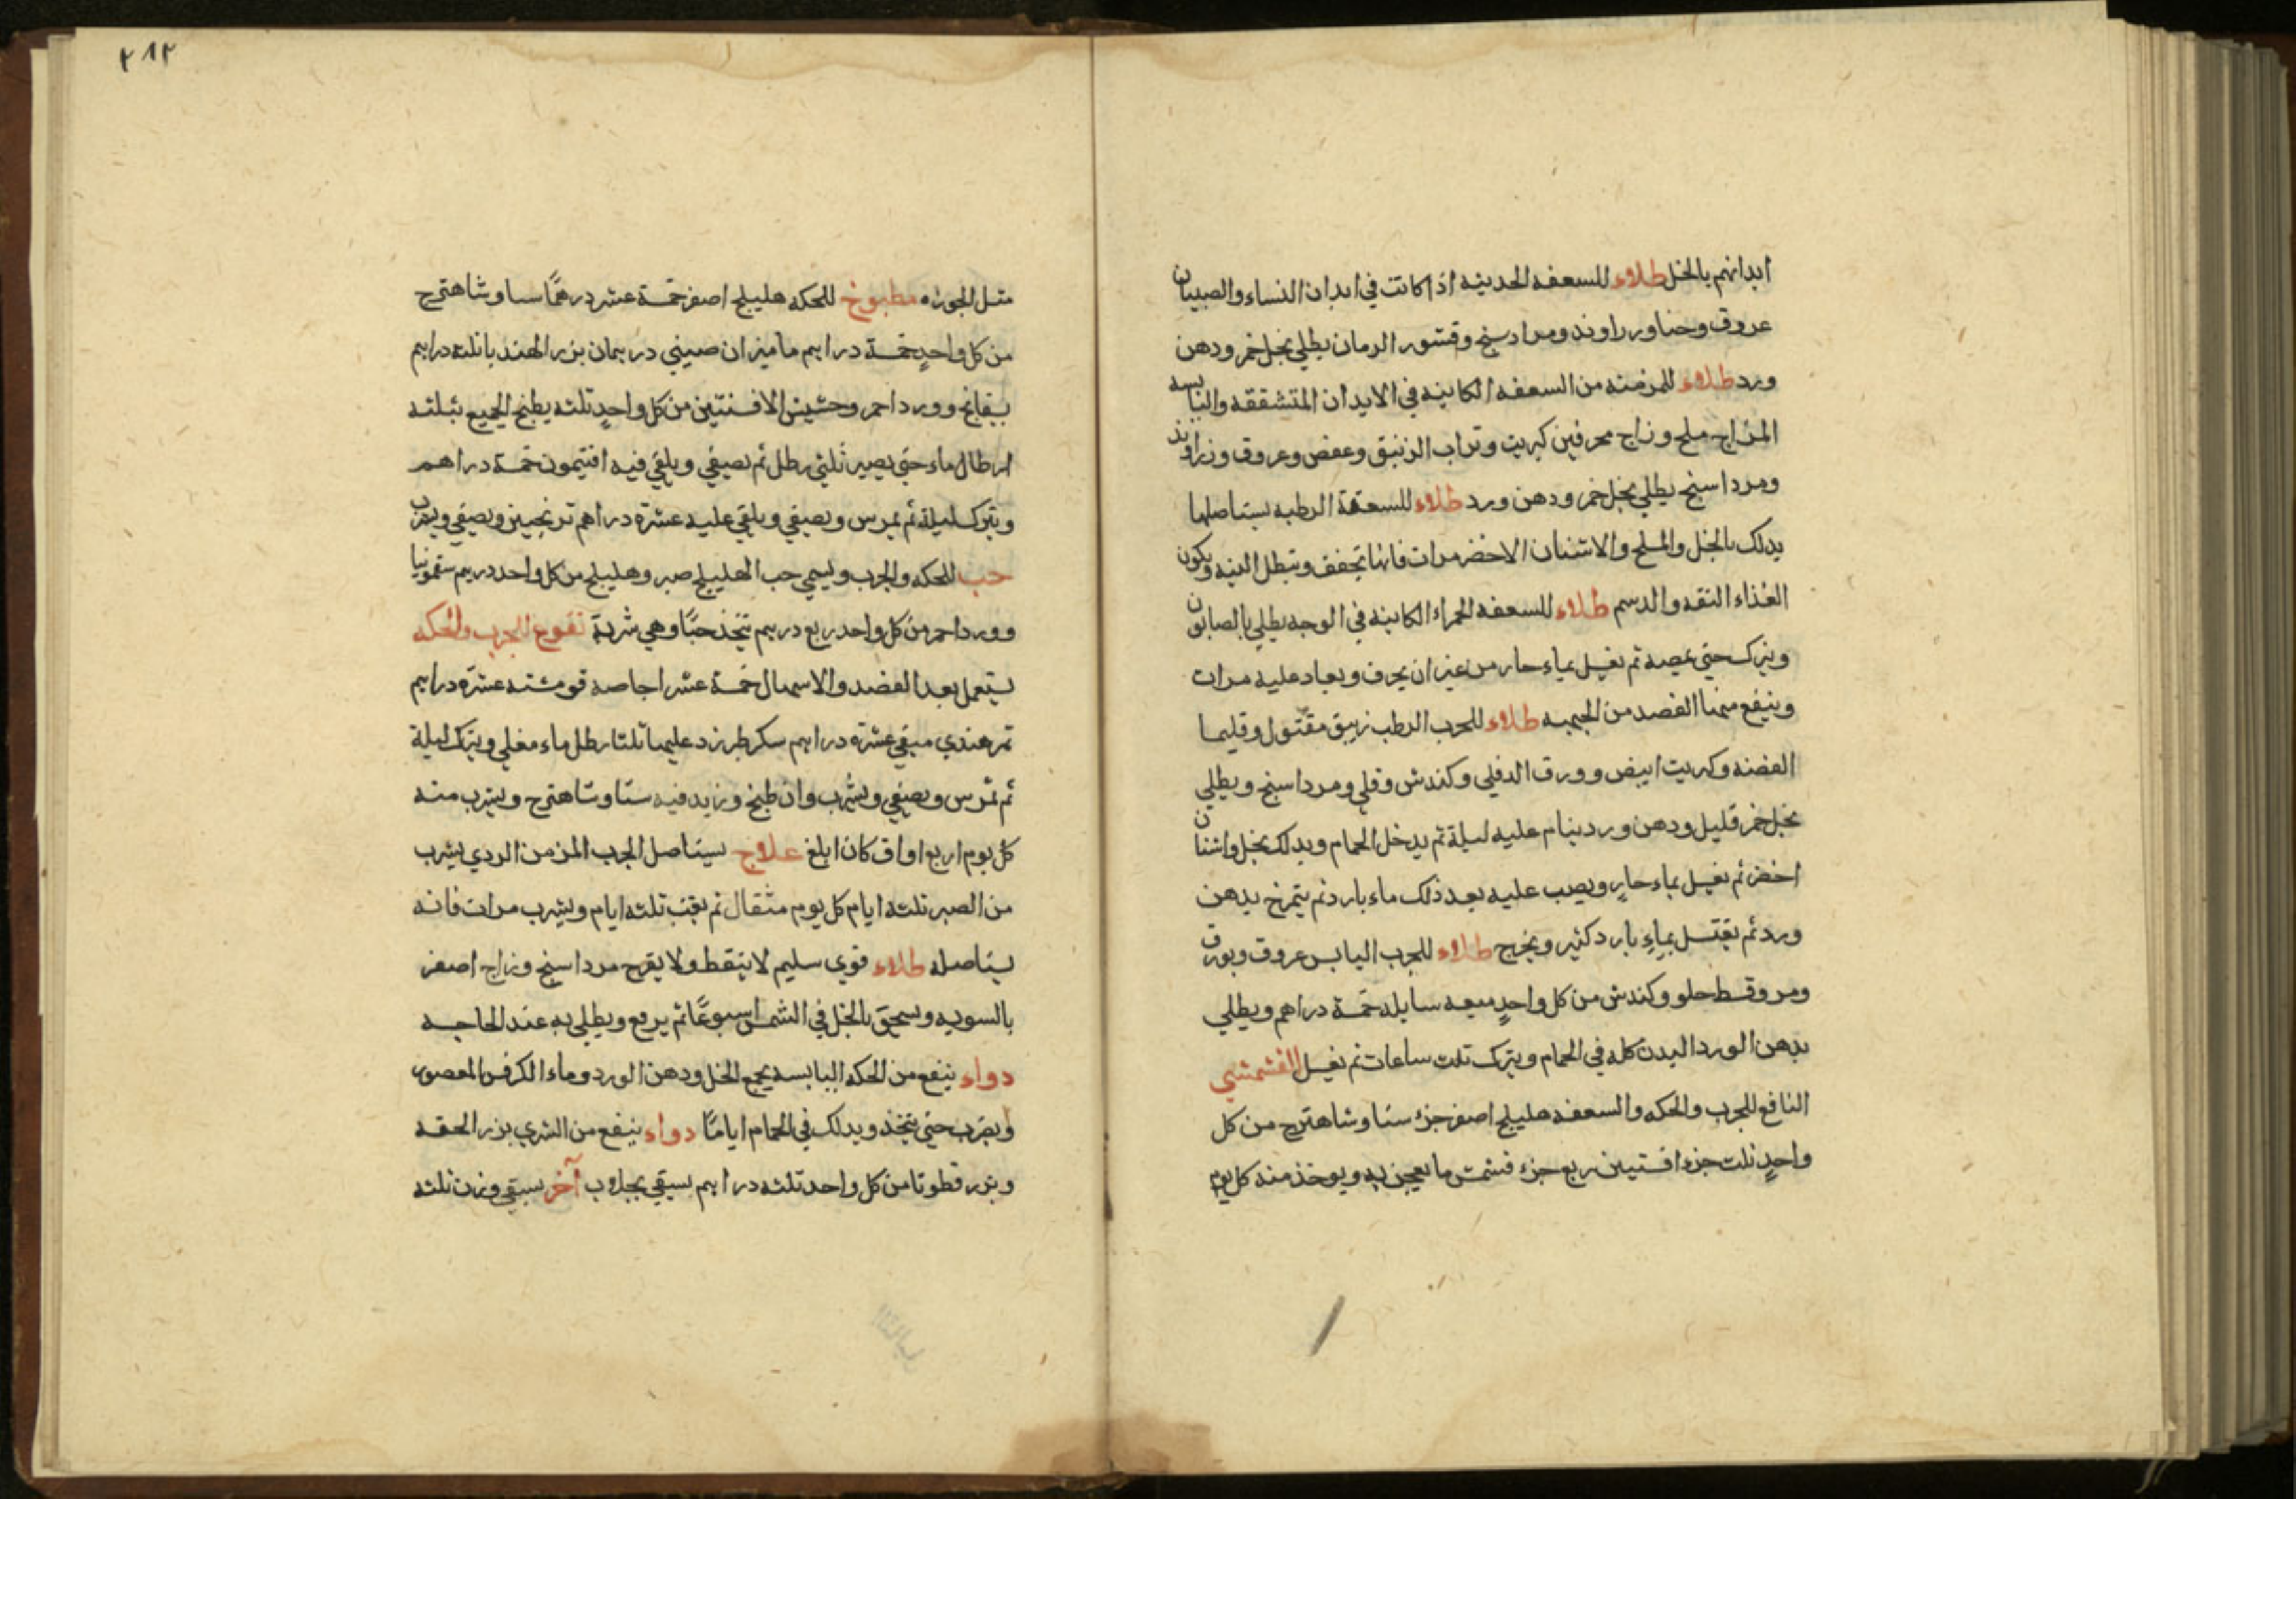 ابدانهم بالخل طلاء للسعفه الحديثه اذا كانت في ابدان النساء والصبيان
عروق وحنا وزراوند ومرادسنج وقشور الرمان يطلي بخل خمر ودهن
ورد طلاء للمزمنه من السعفه الكاينه في الابدان المتشققه واليابسه
المزاج ملح وزاج محرقين كبريت وتراب الزئبق وعفص وعروق وزراوند
ومرداسنج يطلي بخل خمر ودهن ورد طلاء للسعفة الرطبه يستاصلها
يدلك بالخل والملح والاشنان الاخضر مرات فانها تجفف وتبطل البته ويكون
الغذاء التفه والدسم طلاء للسعفه الحمراء الكاينه في الوجه يطلي بالصابون
ويترك حتي يمصه ثم يغسل بماء حار من غير ان يحرف ويعاد عليه مرات
وينفع منها الفصد من الجبهه طلاء للجرب الرطب زيبق مقتول وقليميا
الفضه وكبريت ابيض وورق الدفلي وكندش وقلي ومرداسنج ويطلي
بخل خمر قليل ودهن ورد ينام عليه ليلة ثم يدخل الحمام ويدلك بخل واشنان
اخضر ثم يغسل بماء حارٍ ويصب عليه بعد ذلك ماء بارد ثم يتمرخ بدهن
ورد ثم يغتسل بماءٍ بارد كثير ويخرج طلاء للجرب اليابس عروق وبورق
ومر وقسط حلو وكندش من كل واحدٍ ميعه سايله خمسة دراهم ويطلي
بدهن الورد البدن كله في الحمام ويترك ثلث ساعات ثم يغسل القشمشي
النافع للجرب والحكه والسعفه هليلج اصفر جزء سنا وشاهترج من كل
واحدٍ ثلث جزء افسنتين ربع جزء قشمش ما يعجن به ويوخذ منه كل يوم
٢١٢
مثل الجوزه مطبوخ للحكه هليلج اصفر خمسة عشر درهمًا سنا وشاهترج
من كل واحدٍ خمسة دراهم ماميران صيني درهمان بزر الهندبا ثلثه دراهم
بسفايج وورد احمر وحشيش الافسنتين من كل واحدٍ ثلثه يطبخ الجميع بثلثه
ارطال ماء حتي يصير ثلثي رطل ثم يصفي ويلقي فيه افتيمون خمسة دراهم
ويترك ليلة ثم يمرس ويصفي ويلقي عليه عشرة دراهم ترنجبين ويصفي ويشرب
حب للحكه والجرب ويسمي حب الهليلج صبر وهليلج من كل واحد درهم سقمونيا
وورد احمر من كل واحد ربع درهم يتخذ حبًا وهي شربة نقوع للجرب والحكه
يستعمل بعد الفصد والاسهال خمسة عشر اجاصه قومشته عشرة دراهم
تمر هندي منقي عشرة دراهم سكر طبرزد عليها ثلثا رطل ماء مغلي ويترك ليلة
ثم يمرس ويصفي ويشرب وان طبخ وزيد فيه سنا وشاهترج ويشرب منه
كل يوم اربع اواق كان ابلغ علاج يستاصل الجرب المزمن الردي يشرب
من الصبر ثلثه ايام كل يوم مثقال ثم يغب ثلثه ايام ويشرب مرات فانه
يستاصله طلاء قوي سليم لا ينقط ولا يقرح مرداسنج وزاج اصفر
بالسويه ويسحق بالخل في الشمس اسبوعًا ثم يرفع ويطلي به عند الحاجه
دواء ينفع من الحكه اليابسه يجمع الخل ودهن الورد وماء الكرفس المعصور
ويضرب حتي يتخذ ويدلك في الحمام ايامًا دواء ينفع من الشري بزر الحمقه
وبزر قطونا من كل واحد ثلثه دراهم يسقي بجلاب آخر يسقي وزن ثلثه